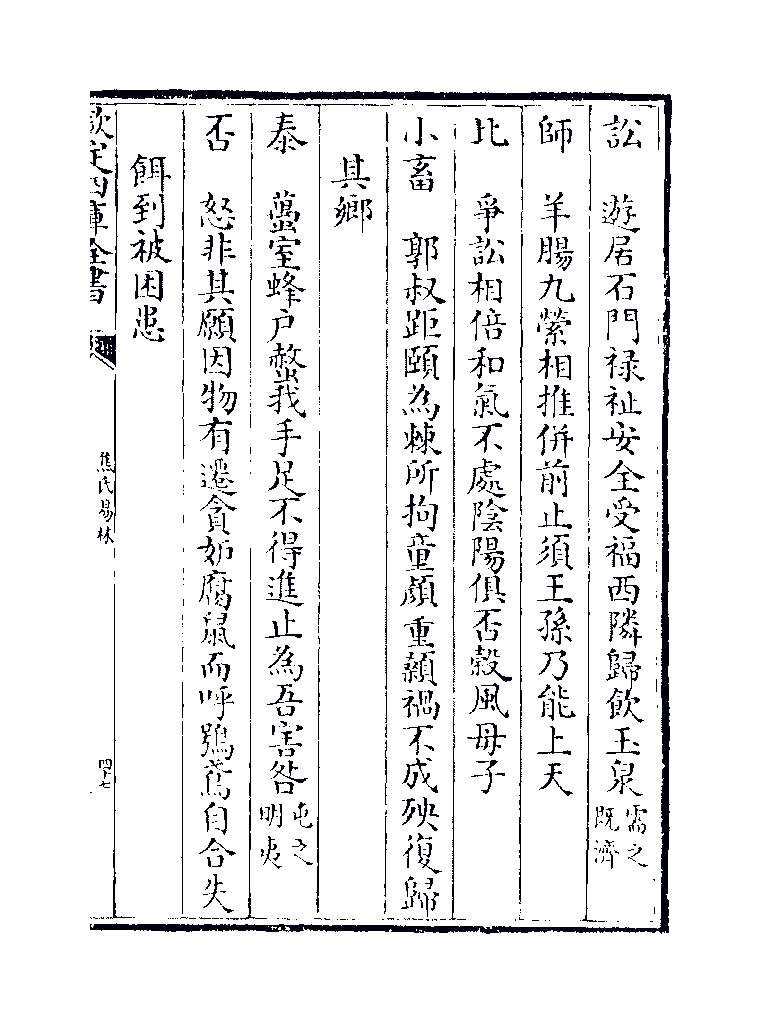 訟　遊居石門禄祉安全受福西隣歸飲玉泉需之既濟
師　羊腸九縈相推併前止須王孫乃能上天
比　爭訟相倍和氣不處陰陽俱否穀風母子
小畜　郭叔距頤為棘所拘童顔重顙禍不成殃復歸
其鄉
泰　蠆室蜂户螫我手足不得進止為吾害咎屯之明夷
否　怒非其願因物有遷貪妬腐鼠而呼鵶鳶自令失
餌到被困患
欽定四庫全書
焦氏易林
四十七